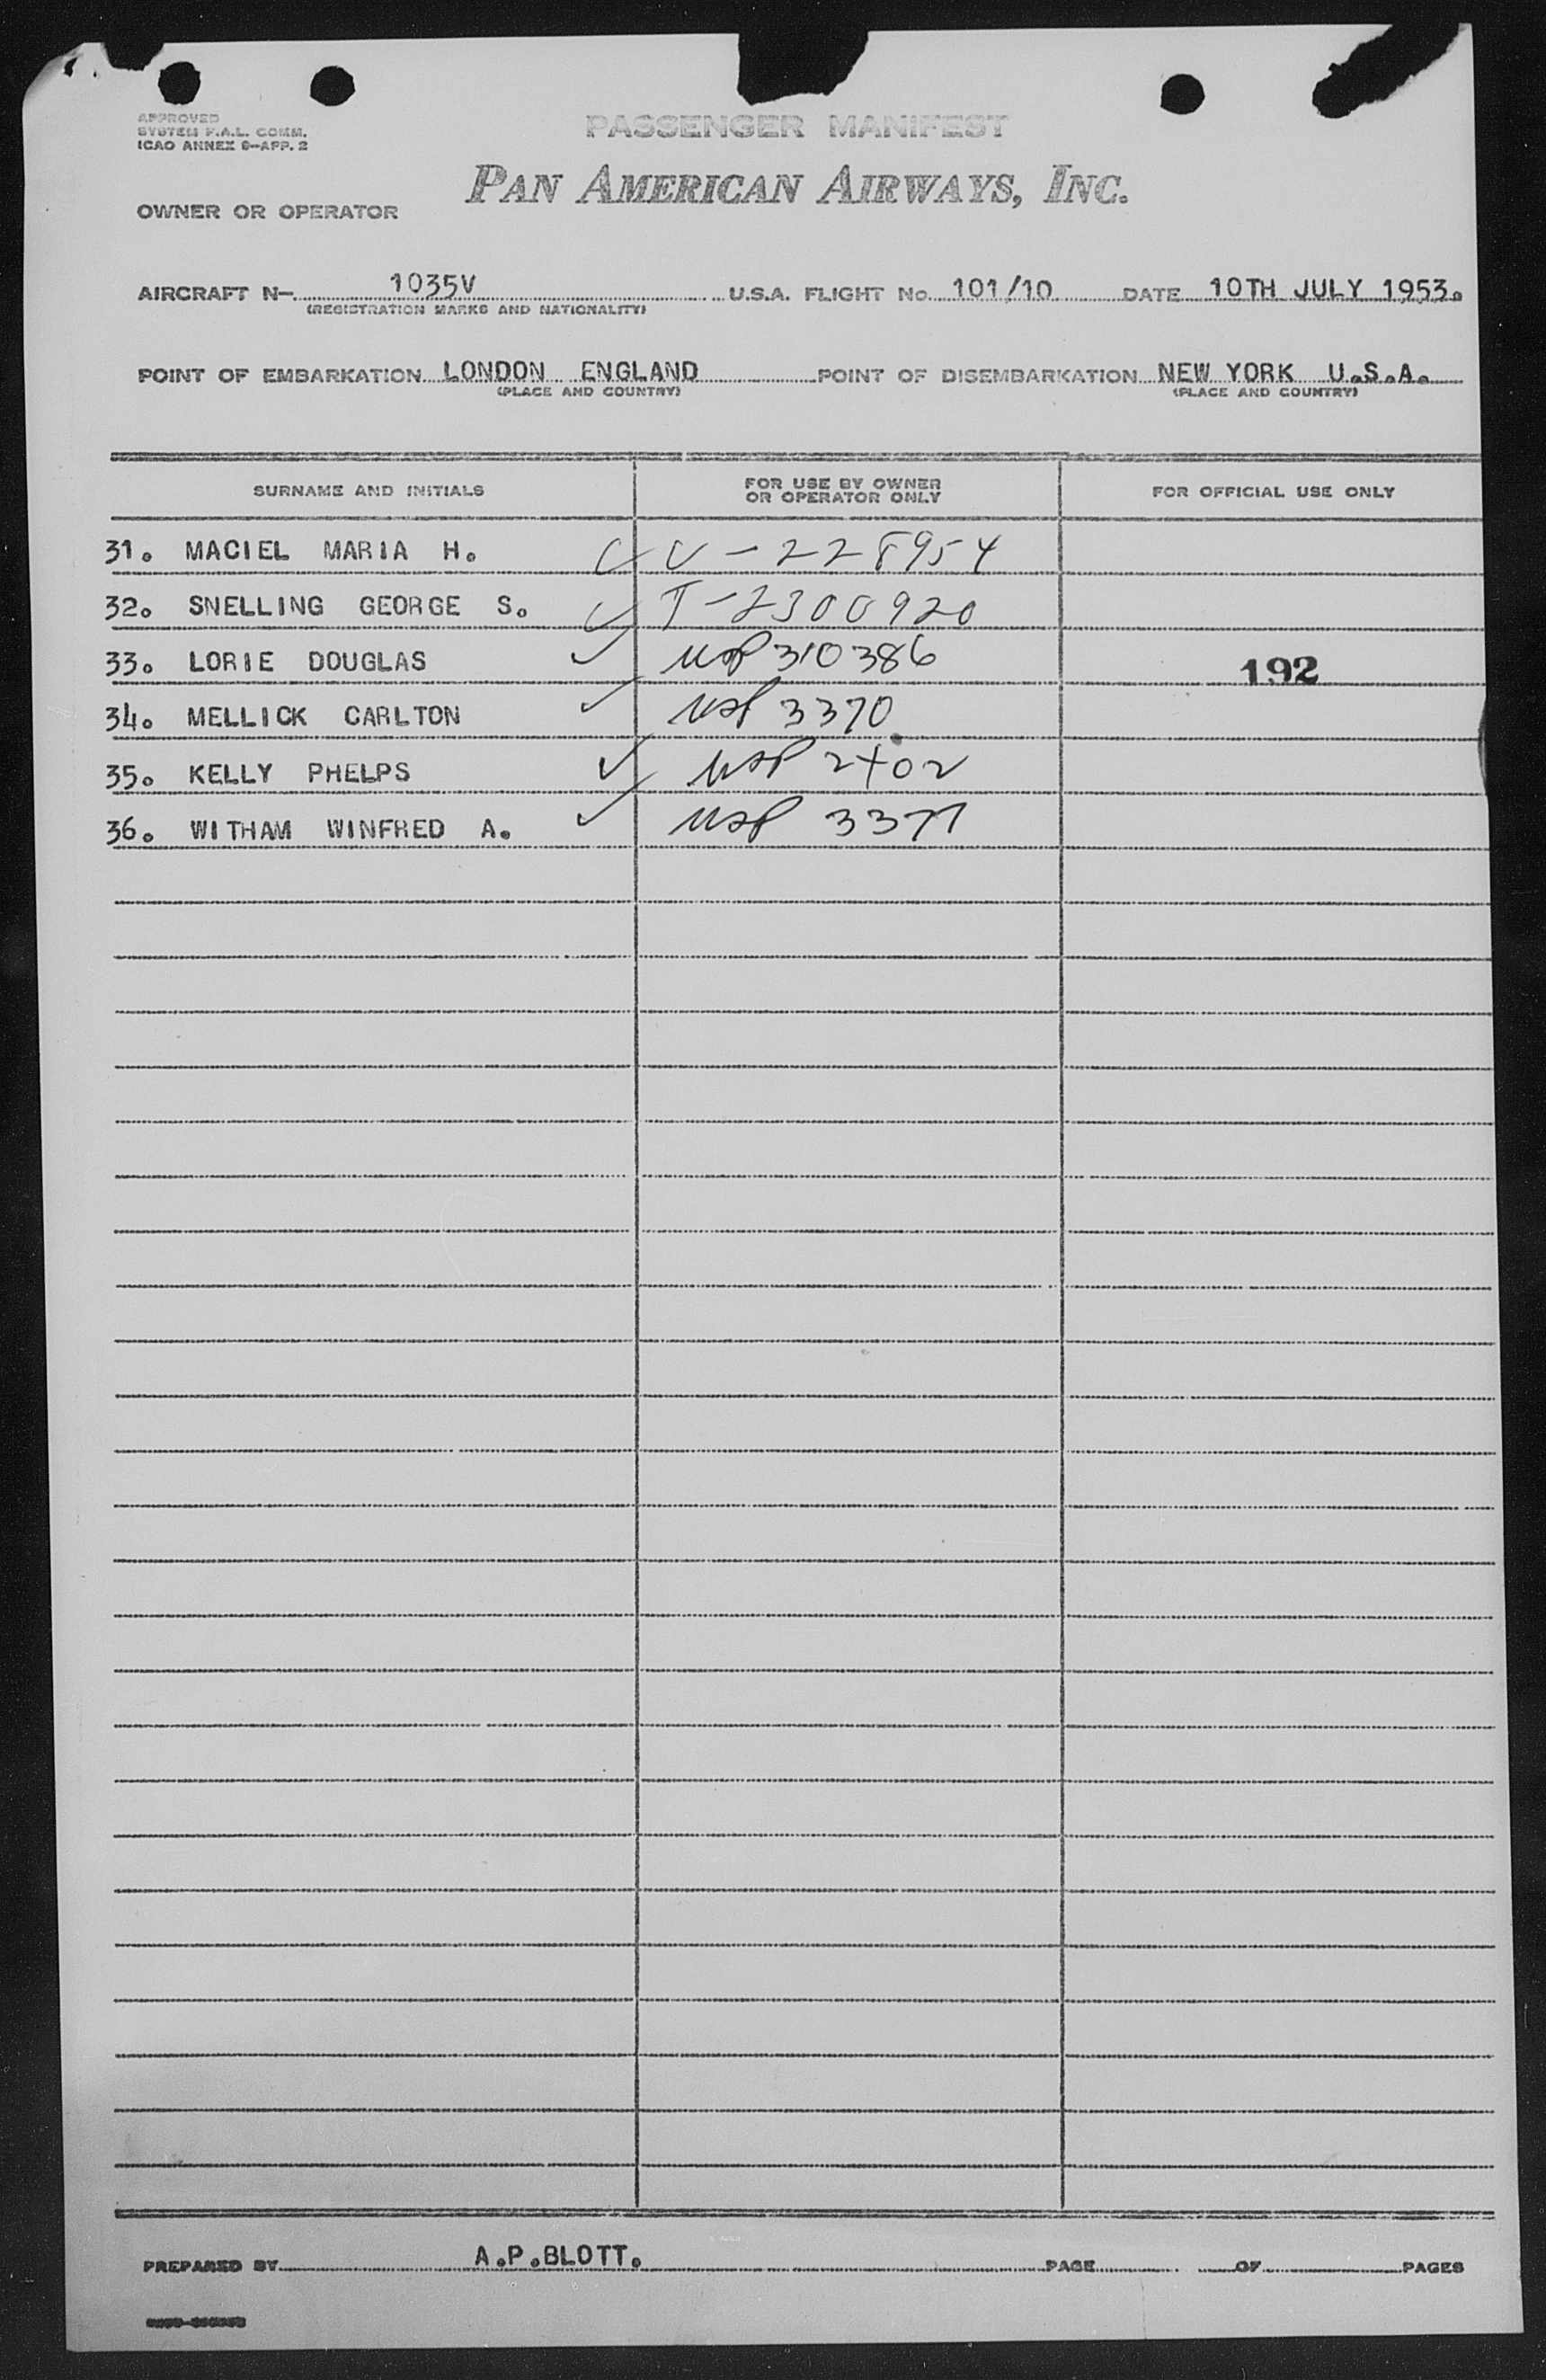 APPROVED
SYSTEM F.A.L. COMM.
ICAO ANNEX 9-APP. 2
PASSENGER MANIFEST
PAN AMERICAN AIRWAYS, INC.
OWNER OR OPERATOR
AIRCRAFT N- 1035V U.S.A. FLIGHT No. 101/10 DATE 10TH JULY 1953.
(REGISTRATION MARKS AND NATIONALITY)
POINT OF EMBARKATION LONDON ENGLAND POINT OF DISEMBARKATION NEW YORK U.S.A.
(PLACE AND COUNTRY) (PLACE AND COUNTRY)
SURNAME AND INITIALS FOR USE BY OWNER OR OPERATOR ONLY FOR OFFICIAL USE ONLY
31. MACIEL MARIA H. V-228954
32. SNELLING GEORGE S. T-2300920
33. LORIE DOUGLAS USP 310386
192
34. MELLICK CARLTON USP 3370
35. KELLY PHELPS USP 2402
36. WITHAM WINFRED A. USP 3371
PREPARED BY A.P.BLOTT. PAGE OF PAGES